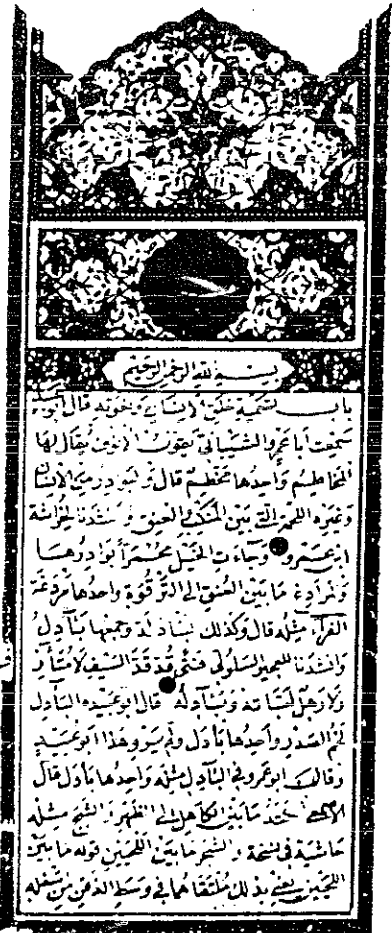 بسم الله الرحمن الرحيم
باب تسمية خلق الانسان ونعوته قال ابو
سمعت ابا عمرو الشيبانى يقول الانوف يقال لها
المخاطم واحدها مخطم قال والبوادر من الانسان
وغيره اللحمة التى بين المنكب والعنق وانشدنا لخراشة
ابن عمرو وجاءت الخيل محمرا بوادرها
والمرادغ ما بين العنق الى الترقوة واحدها مردغة
الفراء مثله قال وكذلك بادلة وجمعها بآدل
وانشدنا للعجير السلولى فتى قد قد السيف لا متآزف
ولا رهل لباته وبآدله قال ابو عبيدة البآدل
لحم الصدر واحدها بأدل ولم يرو هذا ابو عبيد
وقال ابو عمرو فى البآدل مثله واحدها بأدل قال
الكتد ما بين الكاهل الى الظهر والثبج مثله
حاشية فى نسخة والشجر ما بين اللحيين قوله ما بين
اللحيين يعنى بذلك ملتقاهما فى وسط الذقن من